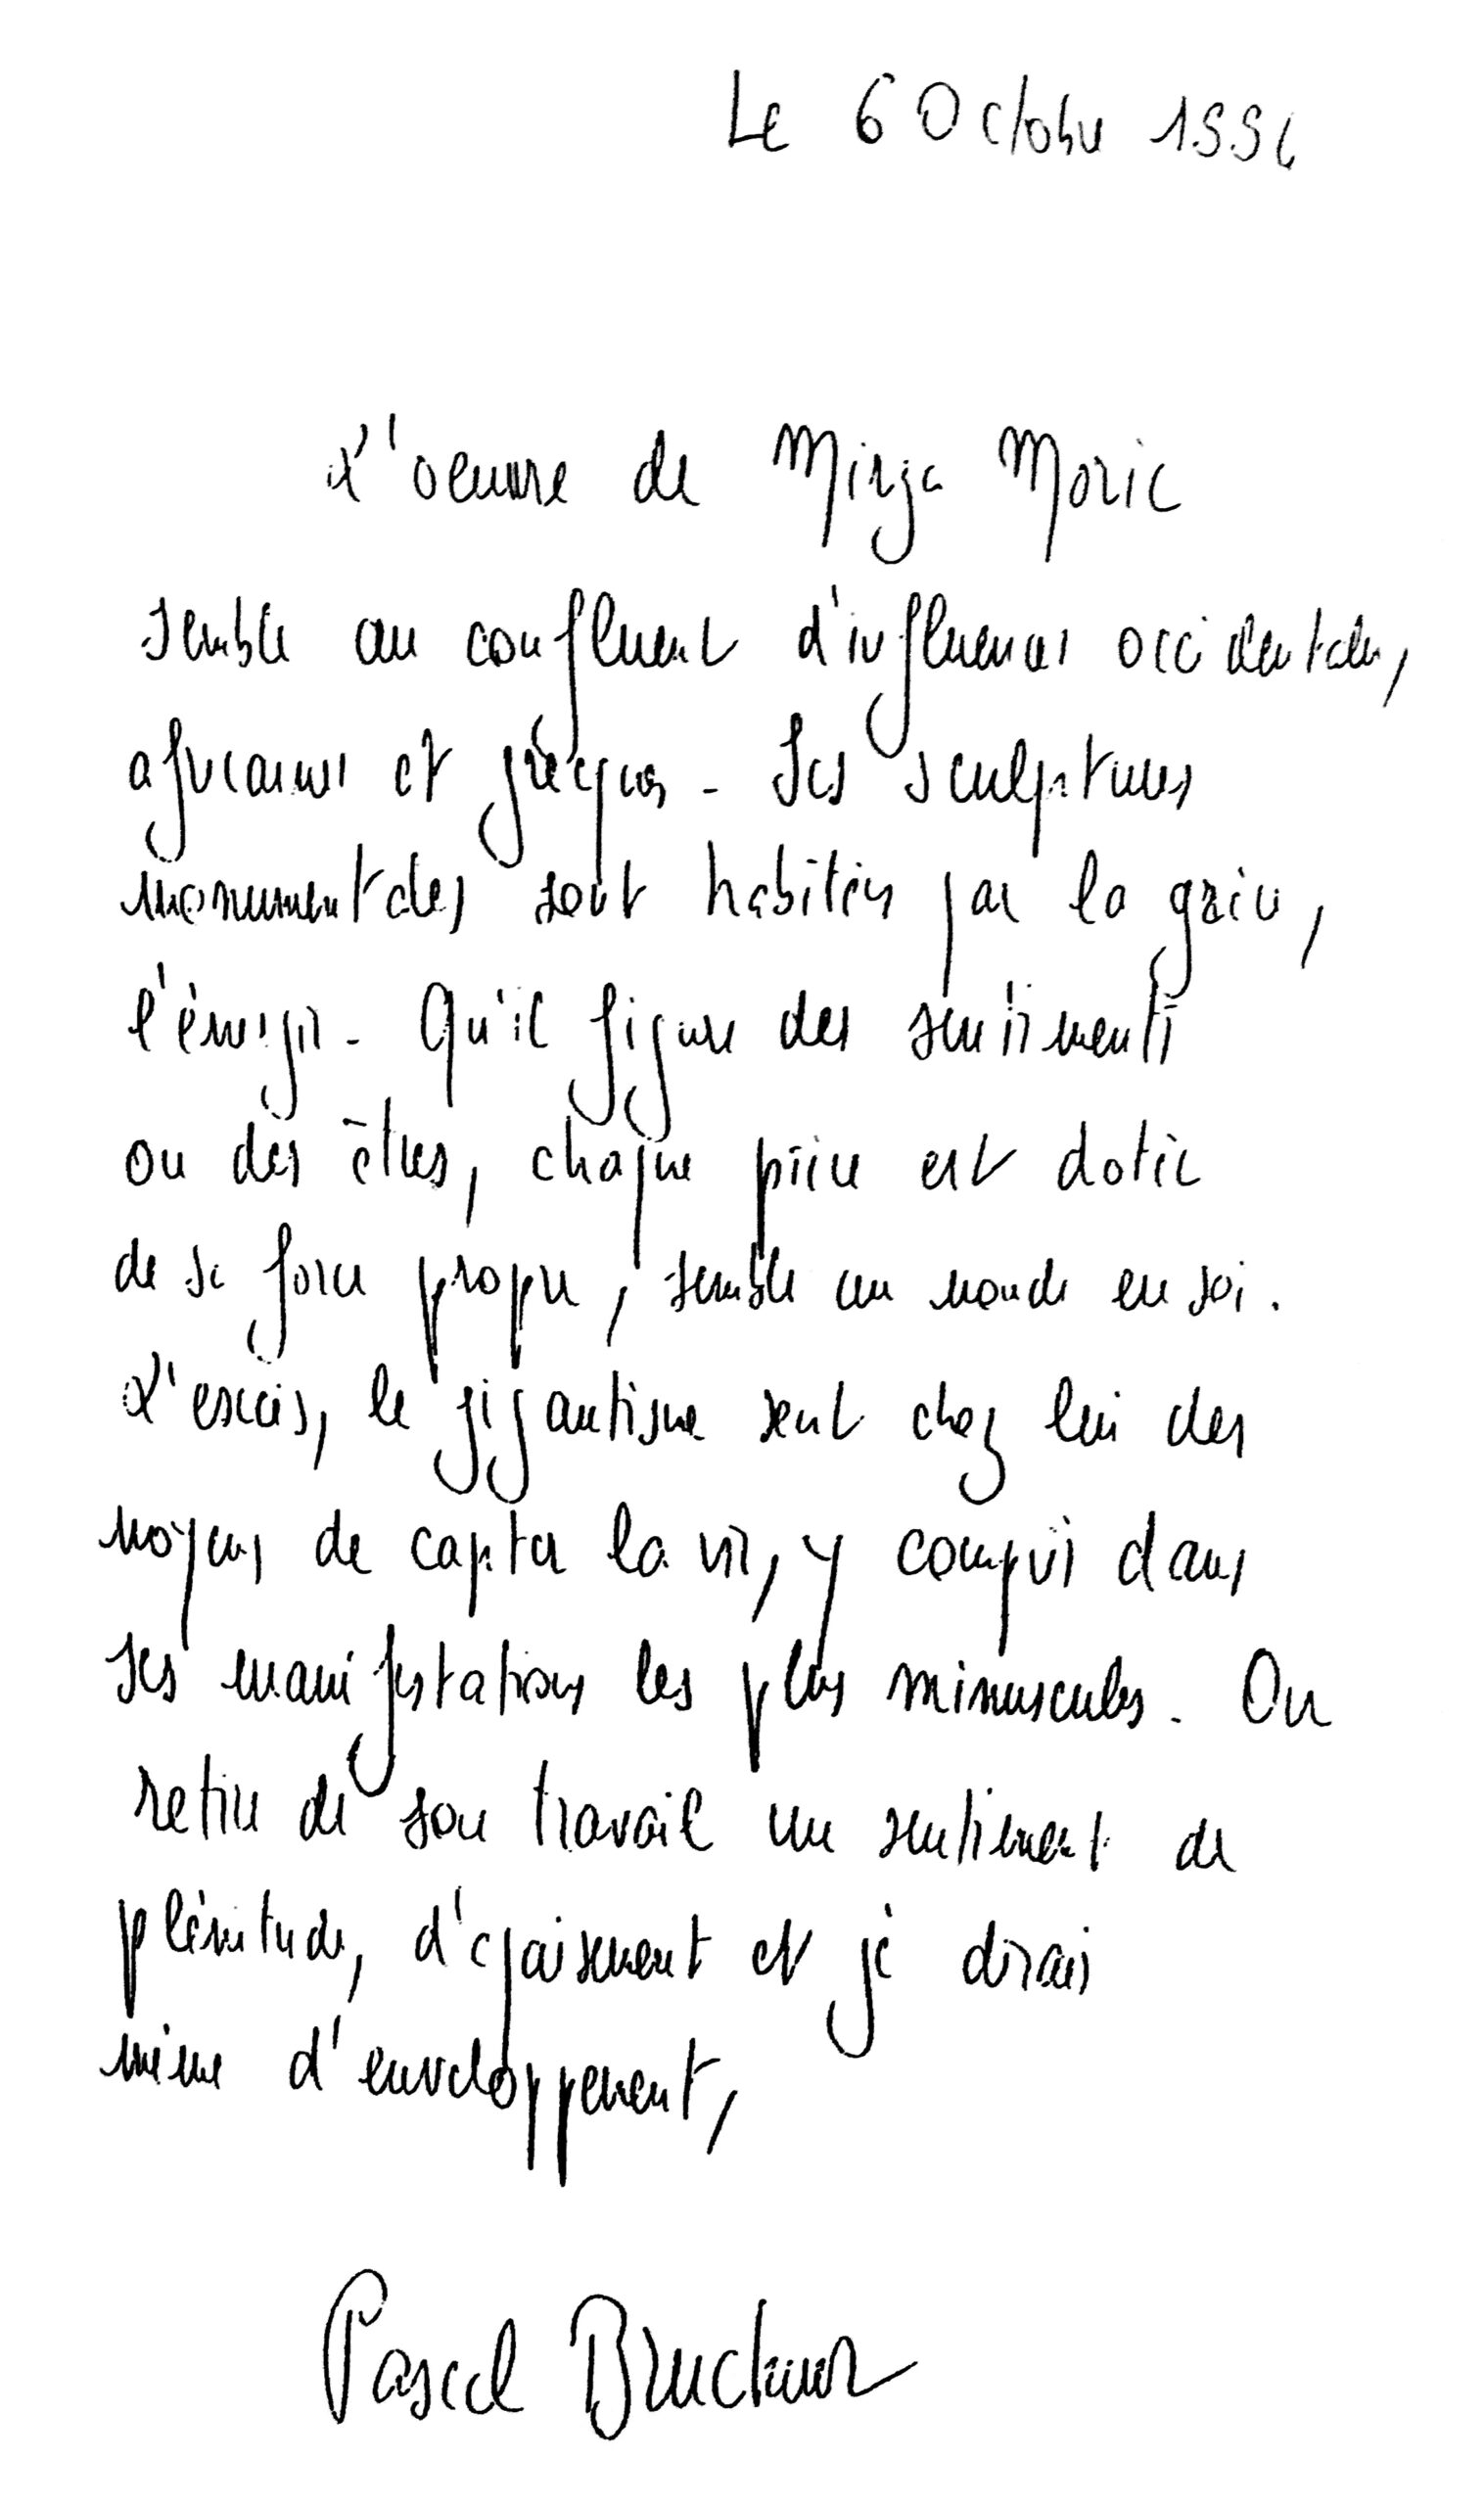 Le 6 Octobre 1996
L'oeuvre de Mirza Moric
semble au confluent d'influences occidentales,
africaines et grècques. Ses sculptures
monumentales sont habitées par la grâce,
l'énergie. Qu'il figure des sentiments
ou des êtres, chaque pièce est dotée
de sa force propre, semble un monde en soi.
L'excès, le gigantisme sont chez lui des
moyens de capter la vie, y compris dans
ses manifestations les plus minuscules. On
retire de son travail un sentiment de
plénitude, d'apaisement et je dirais
même d'enveloppement,
Pascal Bruckner